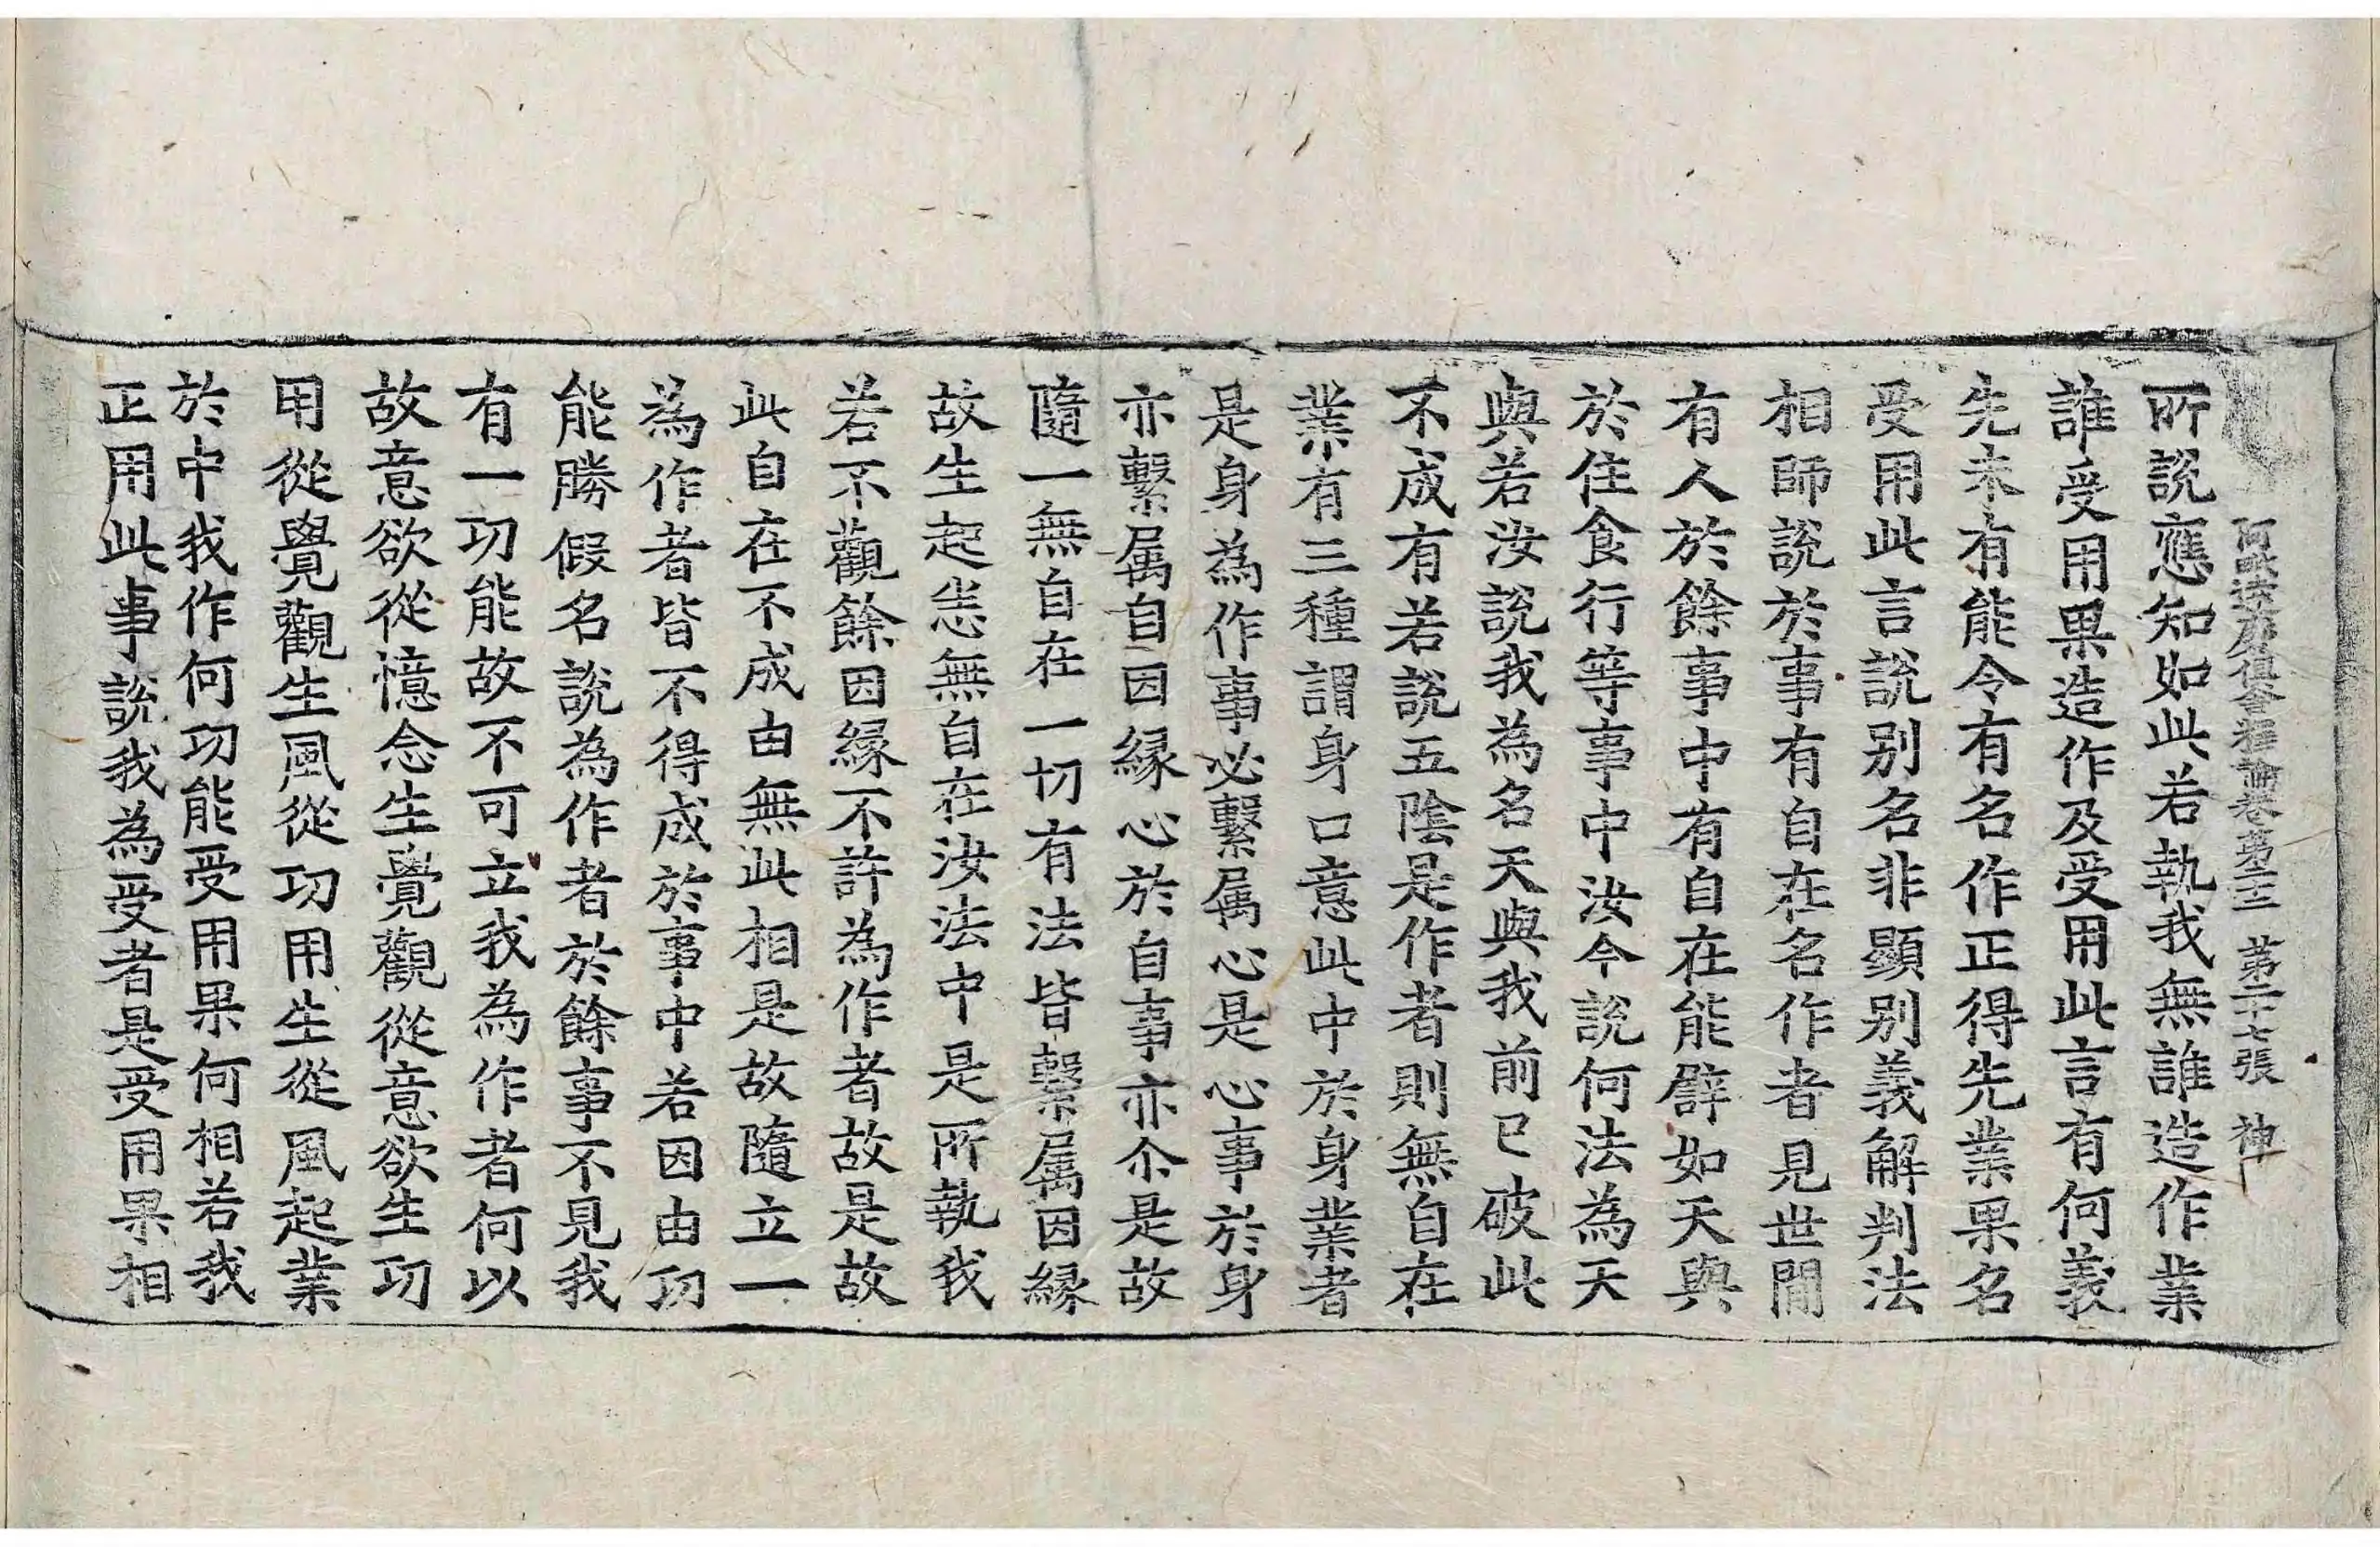 阿毗達磨俱舍釋論卷第二十二 第二十七張 神
所說應知如此若執我無誰造作業
誰受用果造作及受用此言有何義
先未有能令有名作正得先業果名
受用此言說別名非顯別義解判法
相師說於事有自在名作者見世間
有人於餘事中有自在能譬如天與
於住食行等事中汝今說何法為天
與若汝說我為名天與我前已破此
不成有若說五陰是作者則無自在
業有三種謂身口意此中於身業者
是身為作事必繫属心是心事於身
亦繫属自因緣心於自事亦尒是故
隨一無自在一切有法皆繫属因緣
故生起恙無自在汝法中是所執我
若不觀餘因緣不許為作者故是故
此自在不成由無此相是故隨立一
為作者皆不得成於事中若因由功
能勝假名說為作者於餘事不見我
有一功能故不可立我為作者何以
故意欲從憶念生覺觀從意欲生功
用從覺觀生風從功用生從風起業
於中我作何功能受用果何相若我
正用此事說我為受者是受用果相